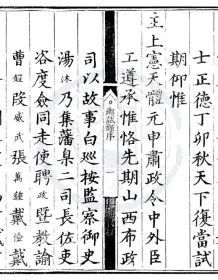 士正德丁卯秋天下復當試
期仰惟
主上憲天體元申肅政令中外臣
工遵承惟恪先期山西布政
鄉試錄序
司以故事白巡按監察御史
湯沐乃集藩臬二司長佐吏
咨度僉同走使聘政暨教諭
曹鎧段威武張萬鍾戴儉戴